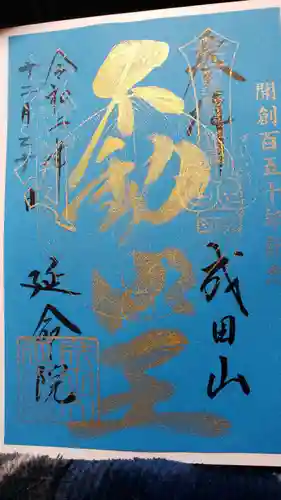 開創百五十年
奉拝
成田山
不動明王
令和二年
十二月
延命院